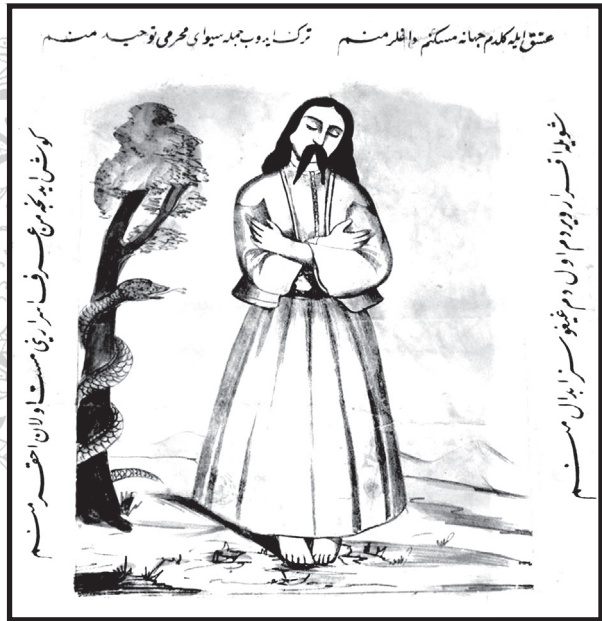 عشق ایله کلدم جهانه مسکنم داغلر منم
ترک ایدوب جمله سیوای محرمی توحید منم
شویله اقرار ویردم اول دم غیغوسز ابدال منم
کوش ایدنجه من عرف اسرارینی مست اولان احقر منم